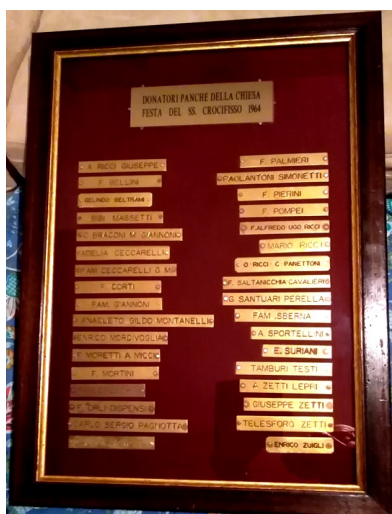 DONATORI PANCHE DELLA CHIESA
FESTA DEL SS. CROCIFISSO 1964
A RICCI GIUSEPPE
F. BELLINI
GELINDO BELTRAMI
BIBI MASSETTI
C BRACONI M. GIANNONI
ADELIA CECCARELLI
FAM. CECCARELLI G M
F. CORTI
FAM. GIANNONI
ANACLETO GILDO MONTANELLI
ENRICO MORDIVOGLIA
F. MORETTI A MICCI
F. MORTINI
F. ORLI DISPENSI
CARLO SERGIO PAGNOTTA
F. PALMIERI
PAOLANTONI SIMONETTI
F. PIERINI
F. POMPEI
F. ALFREDO UGO RICCI
MARIO RICCI
O RICCI C PANETTONI
F. SALTANICCHIA CAVALIERI
G. SANTUARI PERELLA
FAM. SBERNA
A SPORTELLINI
E. SURIANI
TAMBURI TESTI
A ZETTI LEPRI
GIUSEPPE ZETTI
TELESFORO ZETTI
ENRICO ZUIGLI